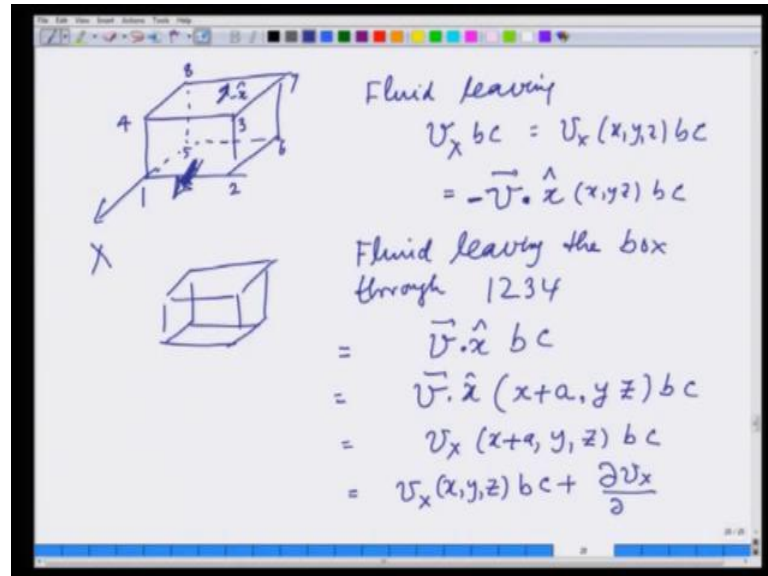 File Edit View Insert Actions Tools Help
8
7
4
3
5
6
1
2
X
Fluid leaving
v_x bc = v_x (x,y,z) bc
= -v⃗ · x̂ (x,yz) bc
Fluid leaving the box
through 1234
= v⃗ · x̂ bc
= v⃗ · x̂ (x+a, y z) bc
= v_x (x+a, y, z) bc
= v_x (x,y,z) bc + ∂v_x / ∂